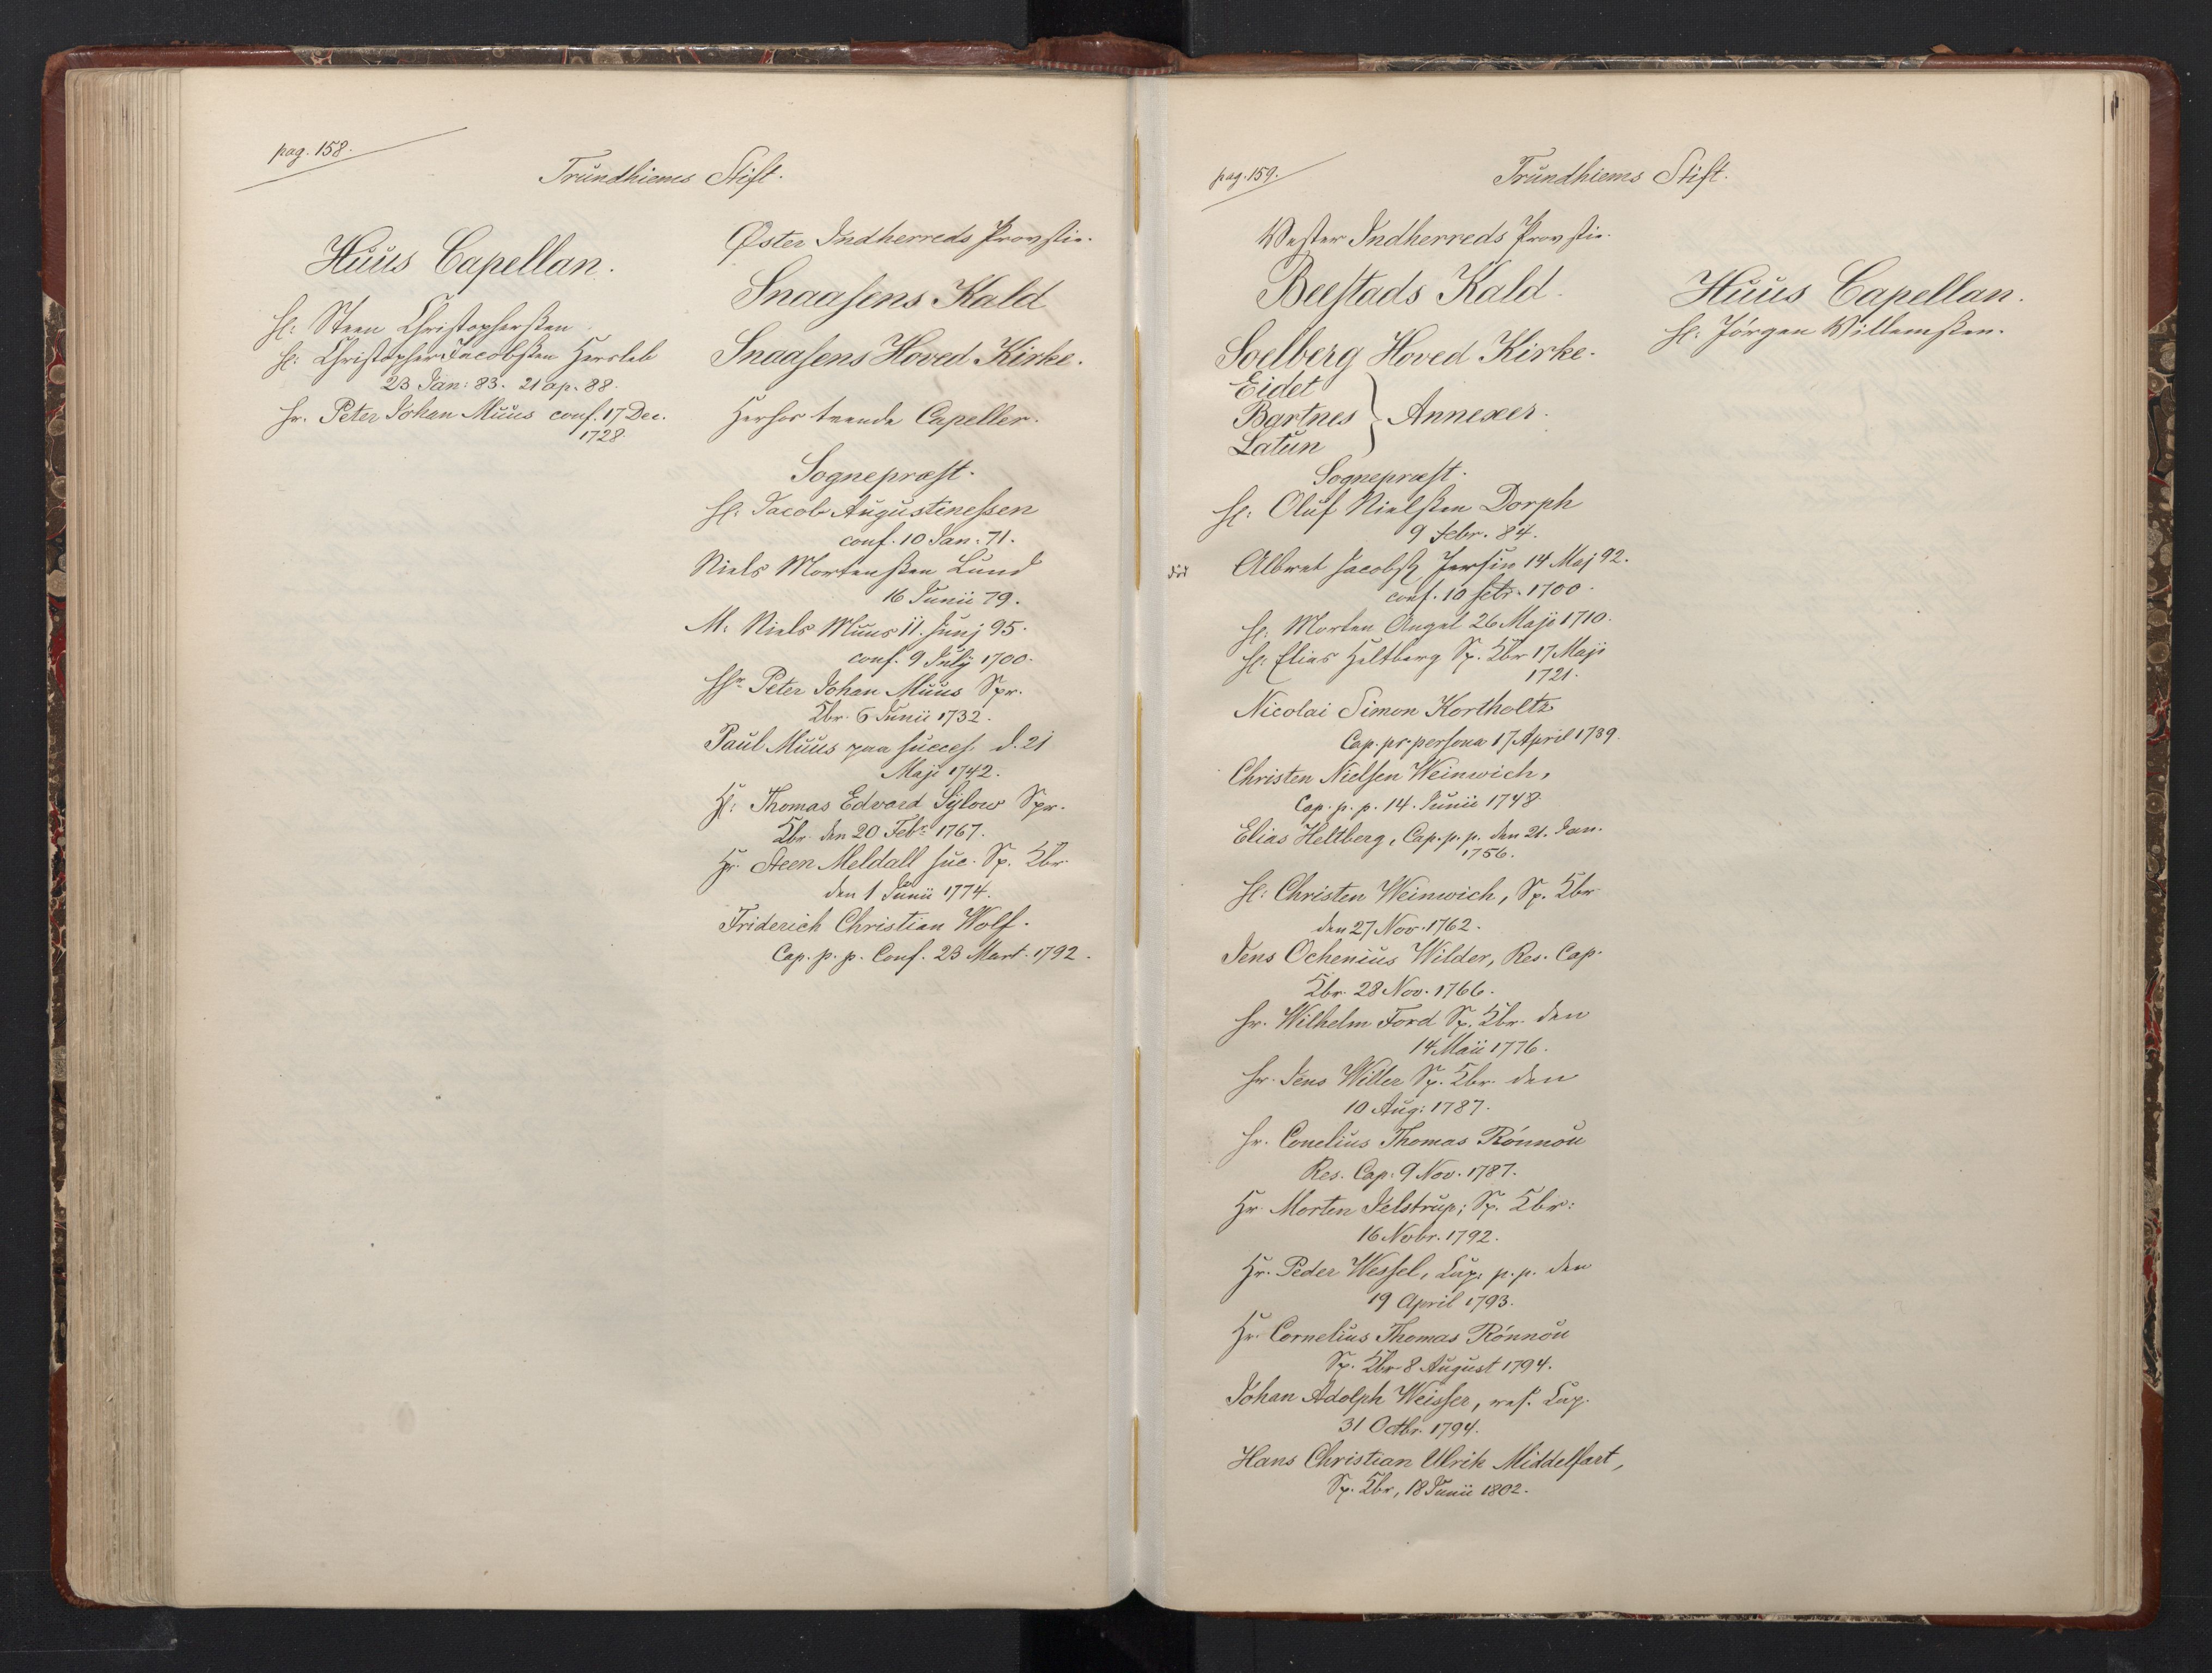 pag. 158.
Trundhiems Stift.
Huus Capellan.
H: Steen Christophersen
H: Christopher Jacobsen Hersleb
23 Jan: 83. 21 ap. 88.
Hr. Peter Johan Muus conf. 17 Dec.
1728
Øster Indherreds Provstie.
Snaasens Kald
Snaasens Hoved Kirke.
Herhos tvende Capeller.
Sognepræst.
H: Jacob Augustinessen
conf. 10 Jan. 71.
Niels Mortensen Lund
16 Junii 79.
M: Niels Muus 11. Junj 95.
conf. 9 July 1700.
Hr Peter Johan Muus Spr.
Kbr. 6 Junii 1732.
Paul Muus paa succes. d. 21
Maji 1742.
H: Thomas Edvard Sylow Spr.
Kbr. den 20 Febr 1767.
Hr. Steen Meldall suc. Sp. Kbr
den 1 Junii 1774.
Friderich Christian Wolf.
Cap. p. p. Conf. 23 Mart. 1792.
pag. 159.
Trundhiems Stift.
Vester Indherreds Provstie.
Beestads Kald.
Soelberg Hoved Kirke.
Eidet
Bartnes } Annexer.
Latun
Sognepræst.
H: Oluf Nielsen Dorph
9 Febr. 84.
Albret Jacobs Jersin 14 Maj 92.
conf. 10 1700.
H: Morten Angel 26 Maji 1710.
H: Elias Heltberg Sp. Kbr 17 Maji
1721.
Nicolai Simon Kortholtz
Cap. pr. persona 17 April 1739.
Christen Nielsen Weinwich,
Cap. p. p. 14. Junii 1748.
Elias Heltberg, Cap. p. p. den 21. Jan.
1756.
H: Christen Weinwich, Sp. Kbr
den 27 Nov. 1762.
Jens Ochenius Wilder, Res. Cap.
Kbr. 28 Nov. 1766.
Hr. Wilhelm Ford Sp. Kbr. den
14 Maii 1776.
Hr. Jens Willer Sp. Kbr. den
10 Aug: 1787.
Hr. Conelius Thomas Rönnou
Res. Cap. 9 Nov. 1787.
Hr. Morten Jelstrup; Sp. Kbr:
16 Nobr. 1792.
Hr. Peder Wessel, Cap. p. p. den
19 April 1793.
Hr. Cornelius Thomas Rönnou
Sp. Kbr 8 August 1794.
Johan Adolph Weisser, res. Cap.
31 Octbr. 1794.
Hans Christian Ulrik Middelfart,
Sp. Kbr, 18 Junii 1802.
Huus Capellan.
H: Jörgen Villemsen.